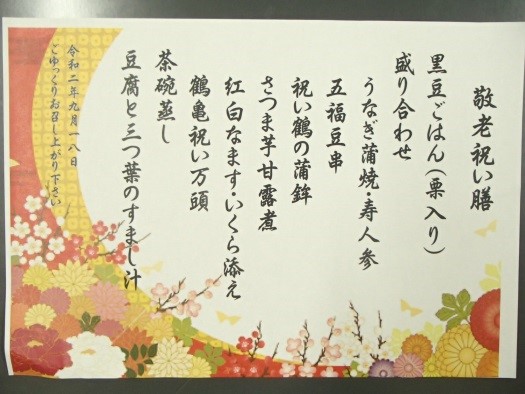 敬老祝い膳
黒豆ごはん(栗入り)
盛り合わせ
うなぎ蒲焼・寿人参
五福豆串
祝い鶴の蒲鉾
さつま芋甘露煮
紅白なます・いくら添え
鶴亀祝い万頭
茶碗蒸し
豆腐と三つ葉のすまし汁
令和二年九月一八日
ごゆっくりお召し上がり下さい